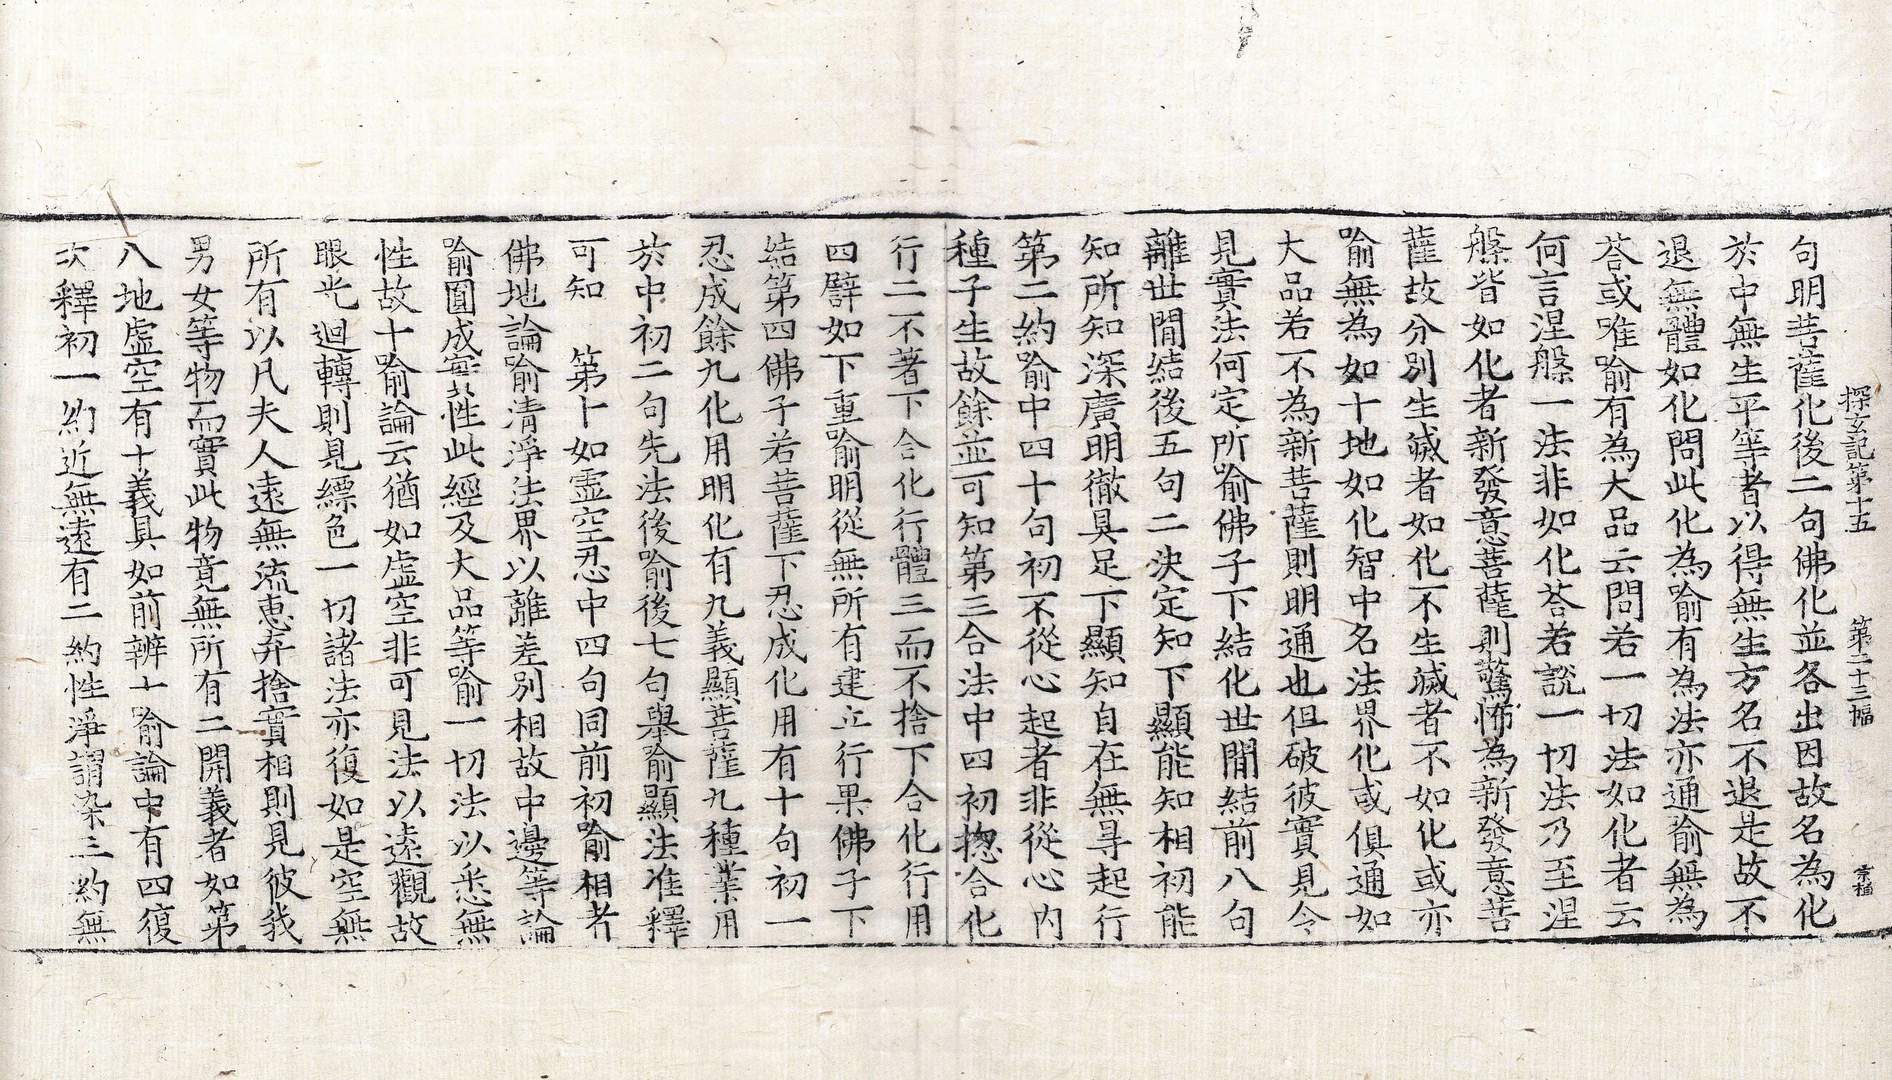 探玄記第十五 第二十三幅 宗植
句明菩薩化後二句佛化並各出因故名為化
於中無生平等者以得無生方名不退是故不
退無體如化問此化為喻有為法亦通喻無為
荅或唯喻有為大品云問若一切法如化者云
何言涅槃一法非如化荅若說一切法乃至涅
槃皆如化者新發意菩薩則驚怖為新發意菩
薩故分別生滅者如化不生滅者不如化或亦
喻無為如十地如化智中名法界化或俱通如
大品若不為新菩薩則明通也但破彼實見令
見實法何定所喻佛子下結化世間結前八句
離世間結後五句二決定知下顯能知相初能
知所知深廣明徹具足下顯知自在無㝵起行
第二約喻中四十句初不從心起者非從心內
種子生故餘並可知第三合法中四初揔合化
行二不著下合化行體三而不捨下合化行用
四譬如下重喻明從無所有建立行果佛子下
結第四佛子若菩薩下忍成化用有十句初一
忍成餘九化用明化有九義顯菩薩九種業用
於中初二句先法後喻後七句舉喻顯法准釋
可知 第十如虛空忍中四句同前初喻相者
佛地論喻清淨法界以離差別相故中邊等論
喻圓成實性此經及大品等喻一切法以悉無
性故十喻論云猶如虛空非可見法以遠觀故
眼光迴轉則見縹色一切諸法亦復如是空無
所有以凡夫人遠無流惠弃捨實相則見彼我
男女等物而實此物竟無所有二開義者如第
八地虛空有十義具如前辨十喻論中有四復
次釋初一約近無遠有二約性淨謂染三約無